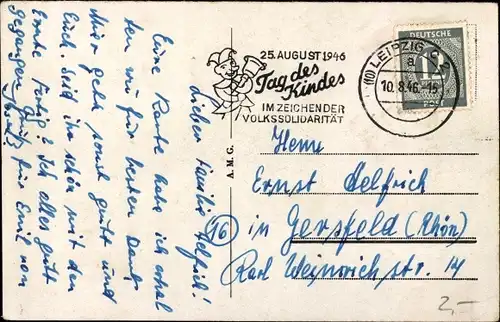 25. AUGUST 1946
Tag des
Kindes
IM ZEICHEN DER
VOLKSSOLIDARITÄT
(10) LEIPZIG
a
10.8.46.-15
DEUTSCHE
12
POST
A.M.G.
Herrn
Ernst Helfrich
(16) in Gersfeld (Rhön)
Karl Weinrich str. 14
Liebe Familie Helfrich!
Eine Karte habe ich erhal
ten wofür besten Dank.
Mir geht sonst gut und
Euch. Seid ihr schön mit der
Ernte fertig? Ist alles gut
gegangen für Emil von
2,-